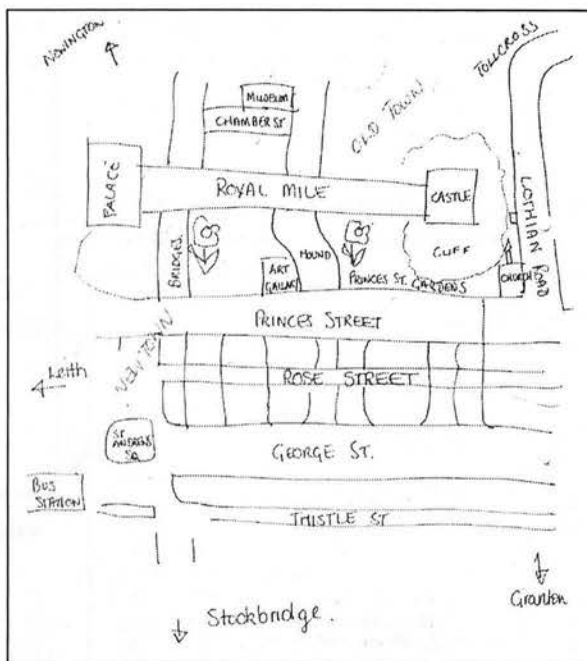 NEWINGTON
TOLLCROSS
MUSEUM
CHAMBER ST
OLD TOWN
PALACE
ROYAL MILE
CASTLE
LOTHIAN ROAD
BRIDGES
MOUND
CLIFF
ART
GALLAR
PRINCES ST. GARDENS
CHURCH
PRINCES STREET
NEW TOWN
Leith
ROSE STREET
ST
ANDREWS
SQ
GEORGE ST.
BUS
STATION
THISTLE ST
Granton
Stockbridge.